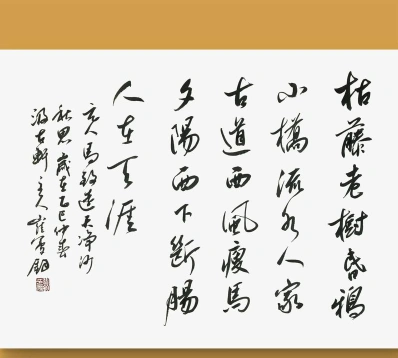 枯藤老樹昏鴉
小橋流水人家
古道西風瘦馬
夕陽西下斷腸
人在天涯
元人馬致遠天净沙
秋思歲在乙巳仲春
游古軒主人崔寶鋼